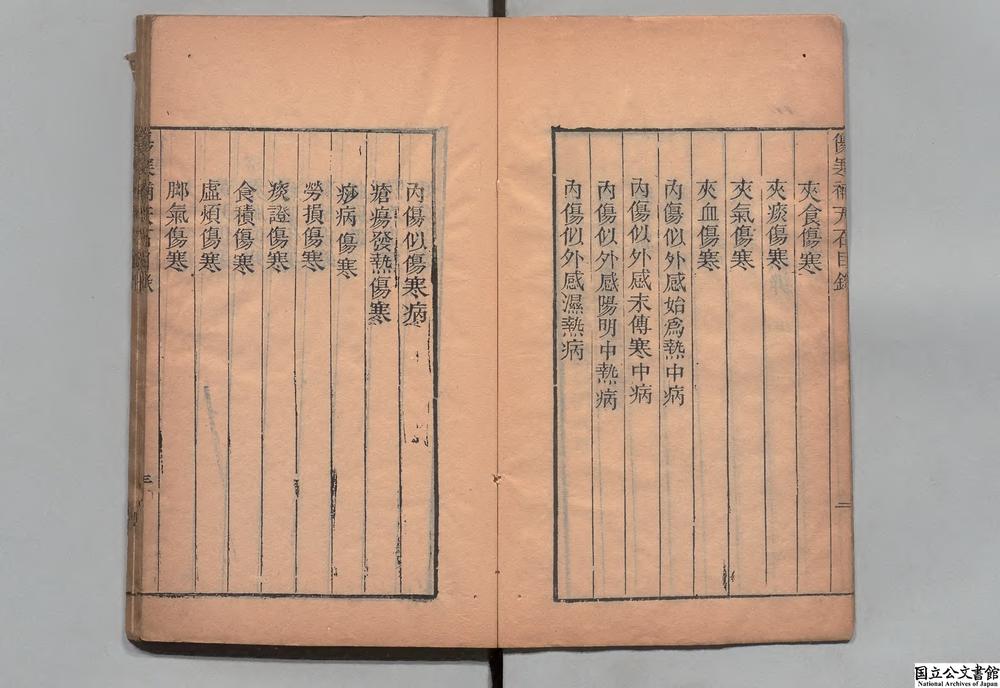 傷寒補天石目錄
夾食傷寒
夾痰傷寒
夾氣傷寒
夾血傷寒
內傷似外感始爲熱中病
內傷似外感末傳寒中病
內傷似外感陽明中熱病
內傷似外感濕熱病
二
內傷似傷寒病
瘡瘍發熱傷寒
痧病傷寒
勞損傷寒
痰證傷寒
食積傷寒
虛煩傷寒
腳氣傷寒
三
国立公文書館
National Archives of Japan